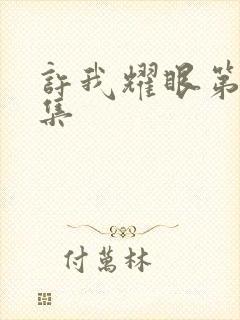 許我耀眼第
集
付萬林